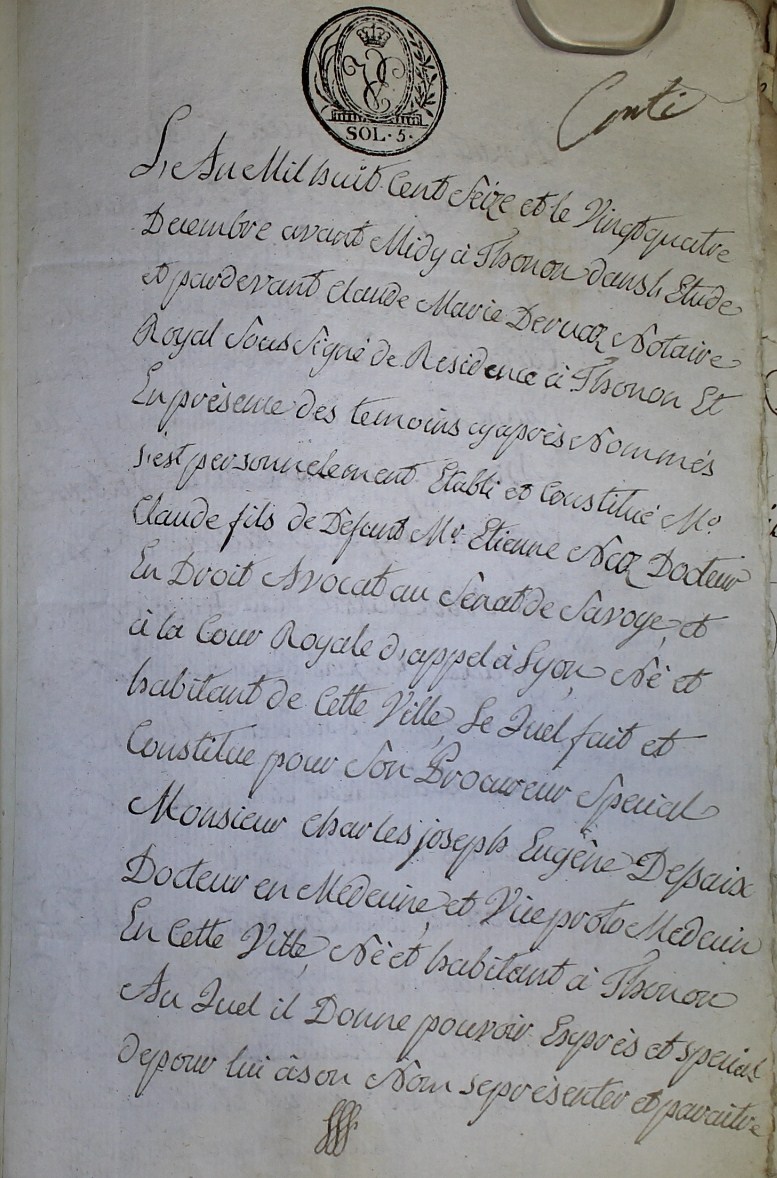 SOL. 5.
Conti
L, An Mil huit Cent Seize et le Vingtquatre
Decembre avant Midy à Thonon dans l, Etude
et pardevant Claude Marie Dervaz Notaire
Royal Sous Signé de Residence à Thonon Et
En présence des temoins cyaprès Nommés
s'est personnelement Etabli et Constitué Mr.
Claude fils de Défunt Mr. Etienne Naz Docteur
En Droit Avocat au Sénat de Savoye, et
à la Cour Royale d, appel à Lyon, Né et
habitant de Cette Ville, Le Quel fait et
Constitue pour Son Procureur Special
Monsieur Charles joseph Eugêne Dessaix
Docteur en Médecine, et Vice proto Medecin
En Cette Ville, Né et habitant à Thonon
Au Quel il Donne pouvoir Exprès et special
de pour lui à son Nom se présenter et paraitre